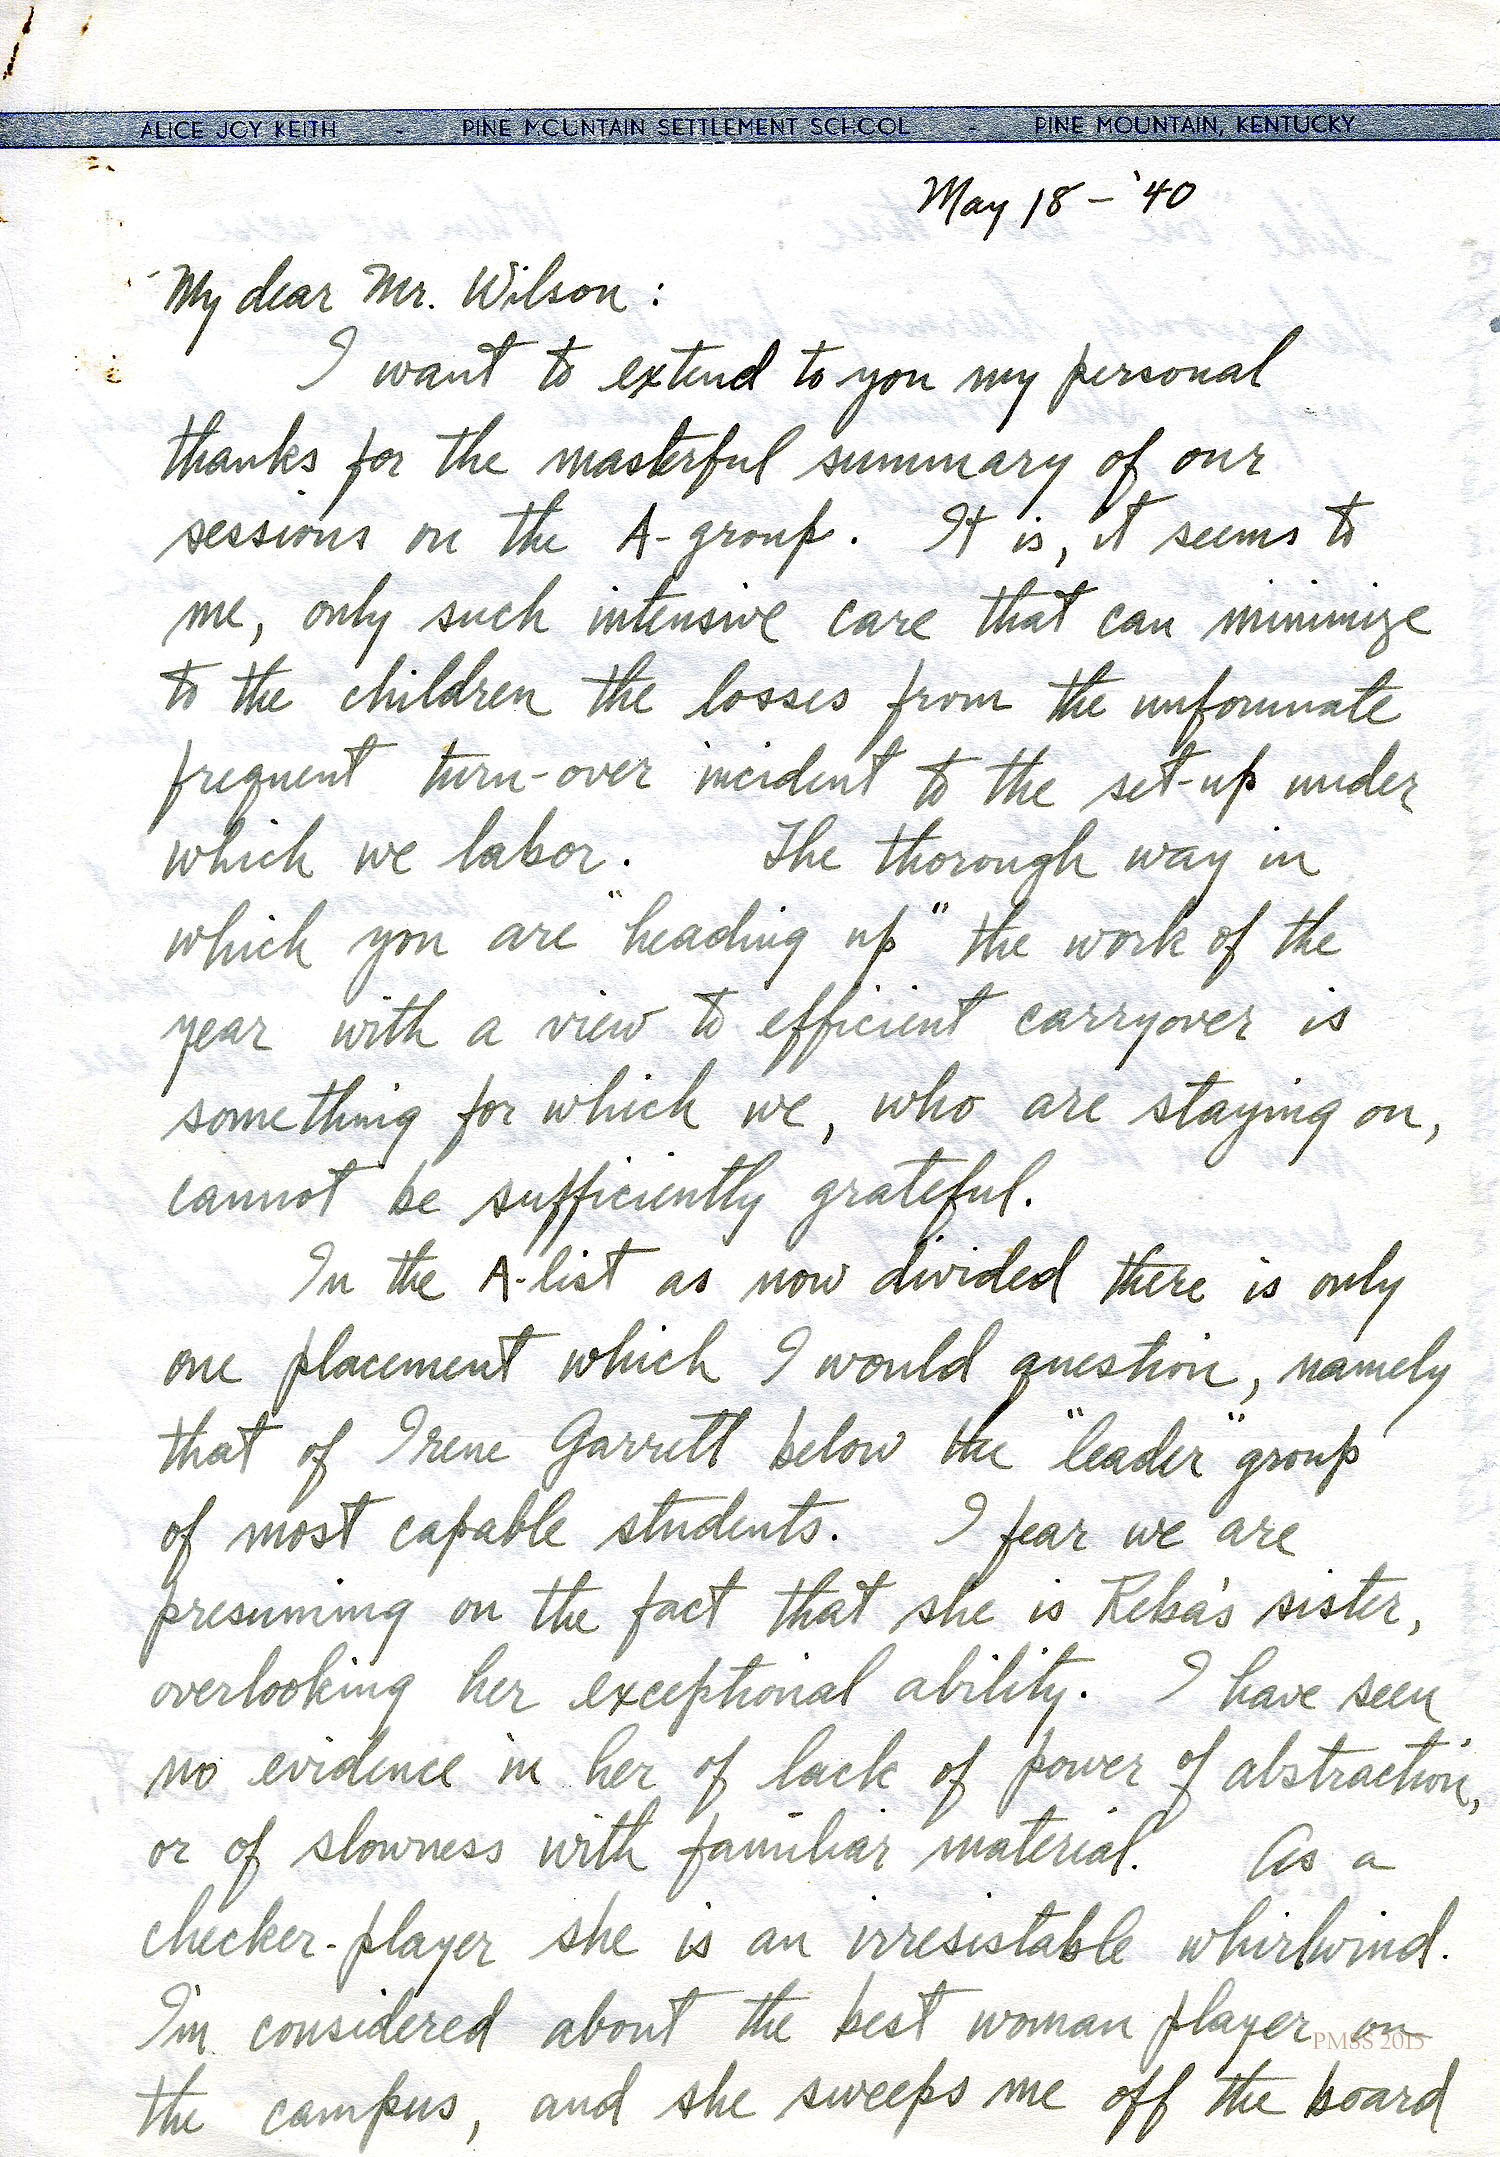 ALICE JOY KEITH - PINE MOUNTAIN SETTLEMENT SCHOOL - PINE MOUNTAIN, KENTUCKY
May 18 – '40
My dear Mr. Wilson:
I want to extend to you my personal
thanks for the masterful summary of our
sessions on the A-group. It is, it seems to
me, only such intensive care that can minimize
to the children the losses from the unfortunate
frequent turn-over incident to the set-up under
which we labor. The thorough way in
which you are "heading up" the work of the
year with a view to efficient carryover is
something for which we, who are staying on,
cannot be sufficiently grateful.
In the A-list as now divided there is only
one placement which I would question, namely
that of Irene Garrett below the "leader" group
of most capable students. I fear we are
presuming on the fact that she is Reba's sister,
overlooking her exceptional ability. I have seen
no evidence in her of lack of power of abstraction,
or of slowness with familiar material. As a
checker-player she is an irresistable whirlwind.
I'm considered about the best woman player on
PMSS 2015
the campus, and she sweeps me off the board